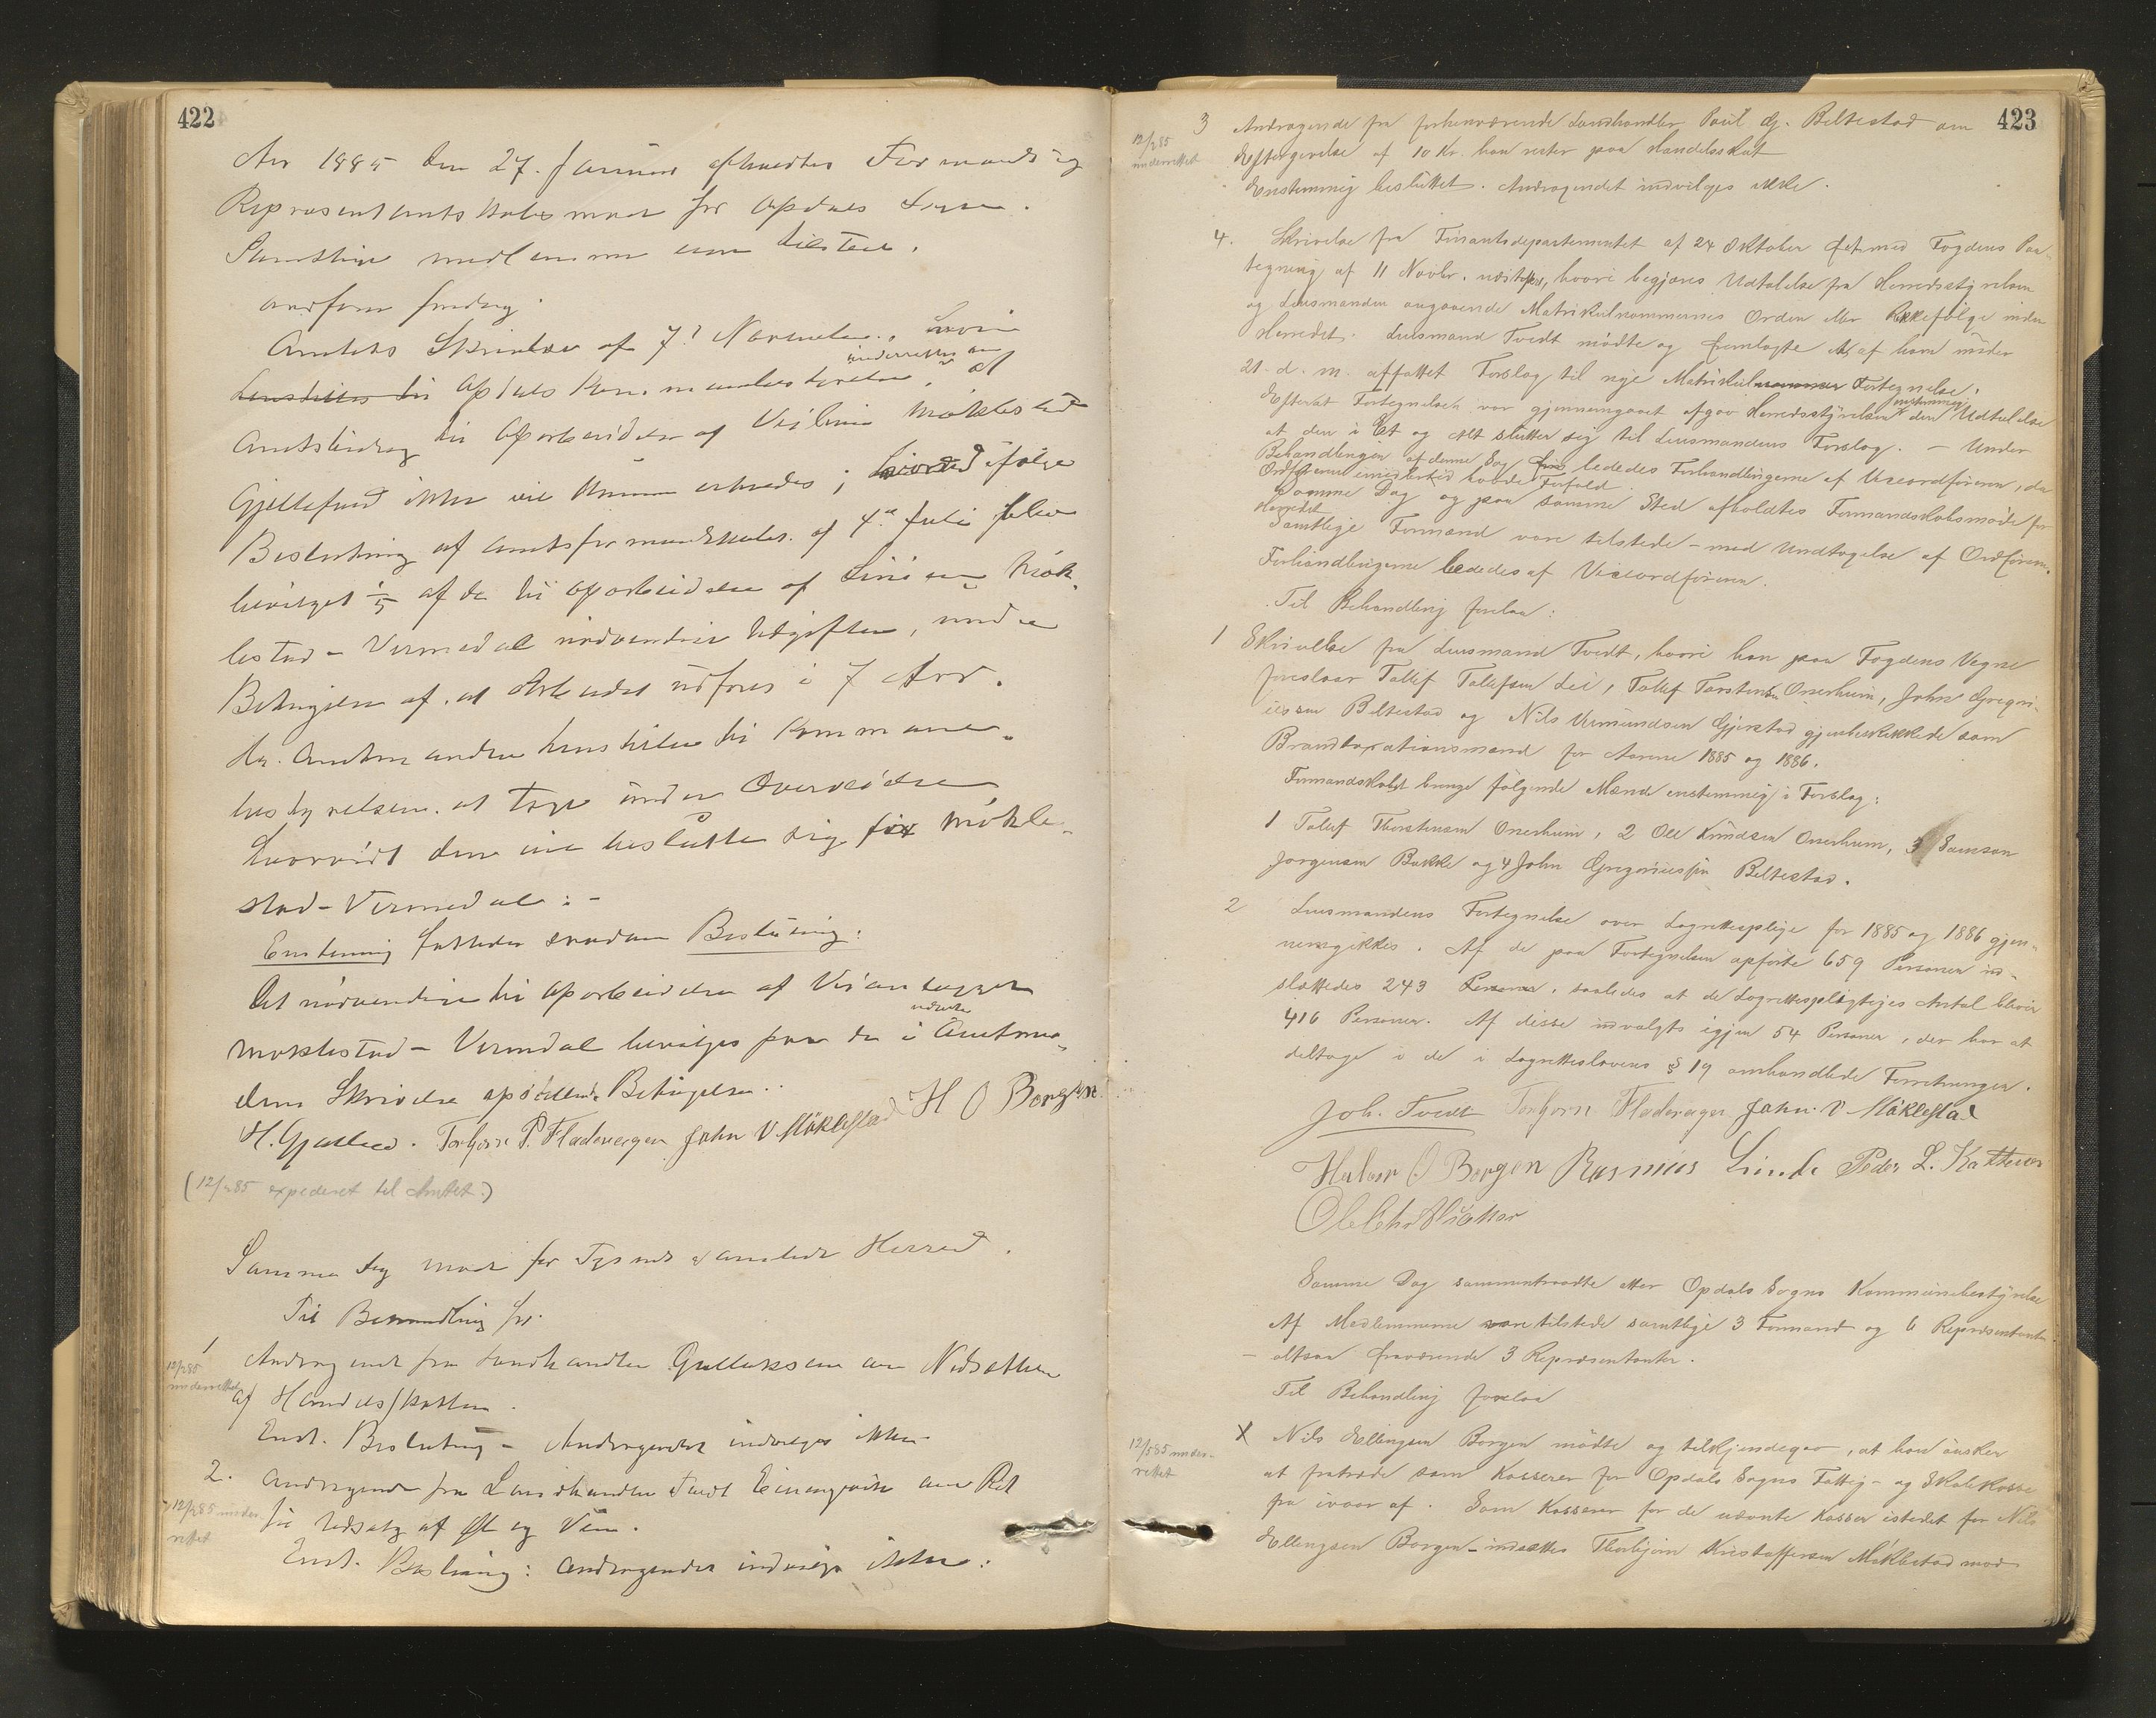 422
Aar 1885 den 27. Januar afholdtes Formands og
Repræsentantskabsmøde for Opdals Sogn.
Samtlige medlemmer vare tilstede.
Amtets Skrivelse af 7de November, hvori
Opdals Kommunebestyrelse underrettes om at
Amtsbidrag til Oparbeidelse af Veilinie Møklestad
Gjellefjord ikke vil kunne erholdes;
Beslutning af Amtsformandskabet af 4de Juli blev
bevilget 1/5 af de til Oparbeidelse af Linien Møk-
lestad - Vermedal nødvendige Udgifter, under
Betingelse af, at Arbeidet udføres i 7 Aar.
Hr. Amtmanden henstiller til Kommune-
bestyrelsen at tage under Overveielse
hvorvidt den vil beslutte sig for Møkle-
stad - Vermedal: -
Enstemmig fattedes saadan Beslutning:
Det nødvendige til Oparbeidelse af Veianlægget
Møklestad - Vermdal bevilges paa de i Amtman-
dens Skrivelse opstillede Betingelser.
H. Gjellved. Torbjørn P. Fladeragen John V Møklestad H O Borgen
(12/2 85 expederet til Amtet.)
Samme Dag møde for Tysnes samlede Herred.
Til Behandling for.
1 Andragende fra Landhandler Gulleksen om Nedsættelse
12/2 85 underrettet
af Handelsskatten.
Enst. Beslutning - Andragendet indvilges ikke.
2. Andragende fra Landhandler Tvedt Einingvik om Ret
12/2 85 under-
rettet
til Udsalg af Øl og Vin.
Enst. Beslutning: Andragendet indvilges ikke:
423
12/2 85
underrettet
3 Andragende fra forhenværende Landhandler Poul Gj. Beltestad om
Eftergivelse af 10 Kr. han rester paa Handelsskat
Enstemmig besluttet. Andragendet indvilges ikke.
4. Skrivelse fra Finantsdepartementet af 24 Oktober f. A. med Fogdens Paa-
tegning af 11 Novbr. næstefter, hvori begjæres Udtalelse fra Herredsstyrelsen
og Lensmanden angaaende Matrikulnummernes Orden eller Rækkefølge inden
Herredet. Lensmand Tvedt mødte og fremlagte et af ham under
21. d. M. affattet Forslag til nye Matrikul Fortegnelse.
Efterat Fortegnelsen var gjennemgaaet afgav Herredsstyrelsen enstemmig den Udtalelse
at den i Et og Alt slutter sig til Lensmandens Forslag. - Under
Behandlingen af denne Sag ledededes Forhandlingerne af Viceordføreren, da
Ordføreren imidlertid havde Forfald.
Samme Dag og paa samme Sted afholdtes Formandskabsmøde for
Herredet
Samtlige Formænd vare tilstede - med Undtagelse af Ordføreren.
Forhandlingerne lededes af Viceordføreren.
Til Behandling forelaa:
1 Skrivelse fra Lensmand Tvedt, hvori han paa Fogdens Vegne
foreslaar Tollef Tollefsen Lei, Tollef Torstensen Onerheim, John Gregori-
iussen Beltestad og Nils Vermundsen Gjerstad gjenbeskikkede som
Brandtaxationsmænd for Aarene 1885 og 1886.
Formandskabet bringe følgende Mænd enstemmig i Forslag:
1 Tollef Thorstensen Onerheim, 2 Ole Knudsen Onerheim, 3 Samson
Jørgensen Bakke og 4 John Gregoriussen Beltestad.
2 Lensmandens Fortegnelse over Lagrettespligtige for 1885 og 1886 gjen-
nemgikkes. Af de paa Fortegnelsen opførte 659 Personer ud-
slettedes 243 Personer, saaledes at de Lagrettespligtiges Antal bliver
416 Personer. Af disse udvalgtes igjen 54 Personer, der har at
deltage i de i Lagretteslovens § 19 omhandlede Forretninger.
Joh. Tvedt Torbjørn Fladeragen John. V Møklestad
Halvor O Borgen Rasmus Lunde Peder L. Kattevær
Ole Chr
Samme Dag sammentraadte atter Opdals Sogns Kommunebestyrelse
Af Medlemmerne vare tilstede samtlige 3 Formænd og 6 Repræsentanter
- altsaa fraværende 3 Repræsentanter.
Til Behandling forelaa
12/2 85 under-
rettet
X Nils Ellingsen Borgen mødte og tilkjendegav, at han ønsker
at fratræde som Kasserer for Opdals Sogns Fattig- og Skolekasse
fra ivaar af. Som Kasserer for de nævnte Kasser istedet for Nils
Ellingsen Borgen - indsættes Thorbjørn Kristoffersen Møklestad mod